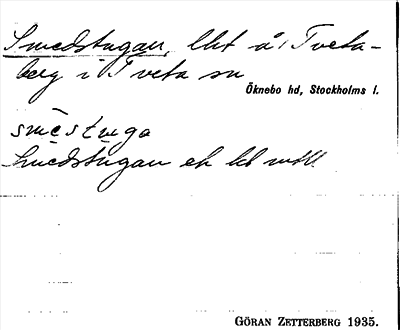 Smedstugan, lht å Tveta-
berg i Tveta sn
Öknebo hd, Stockholms l.
Smedstugan ek bl
GÖRAN ZETTERBERG 1935.